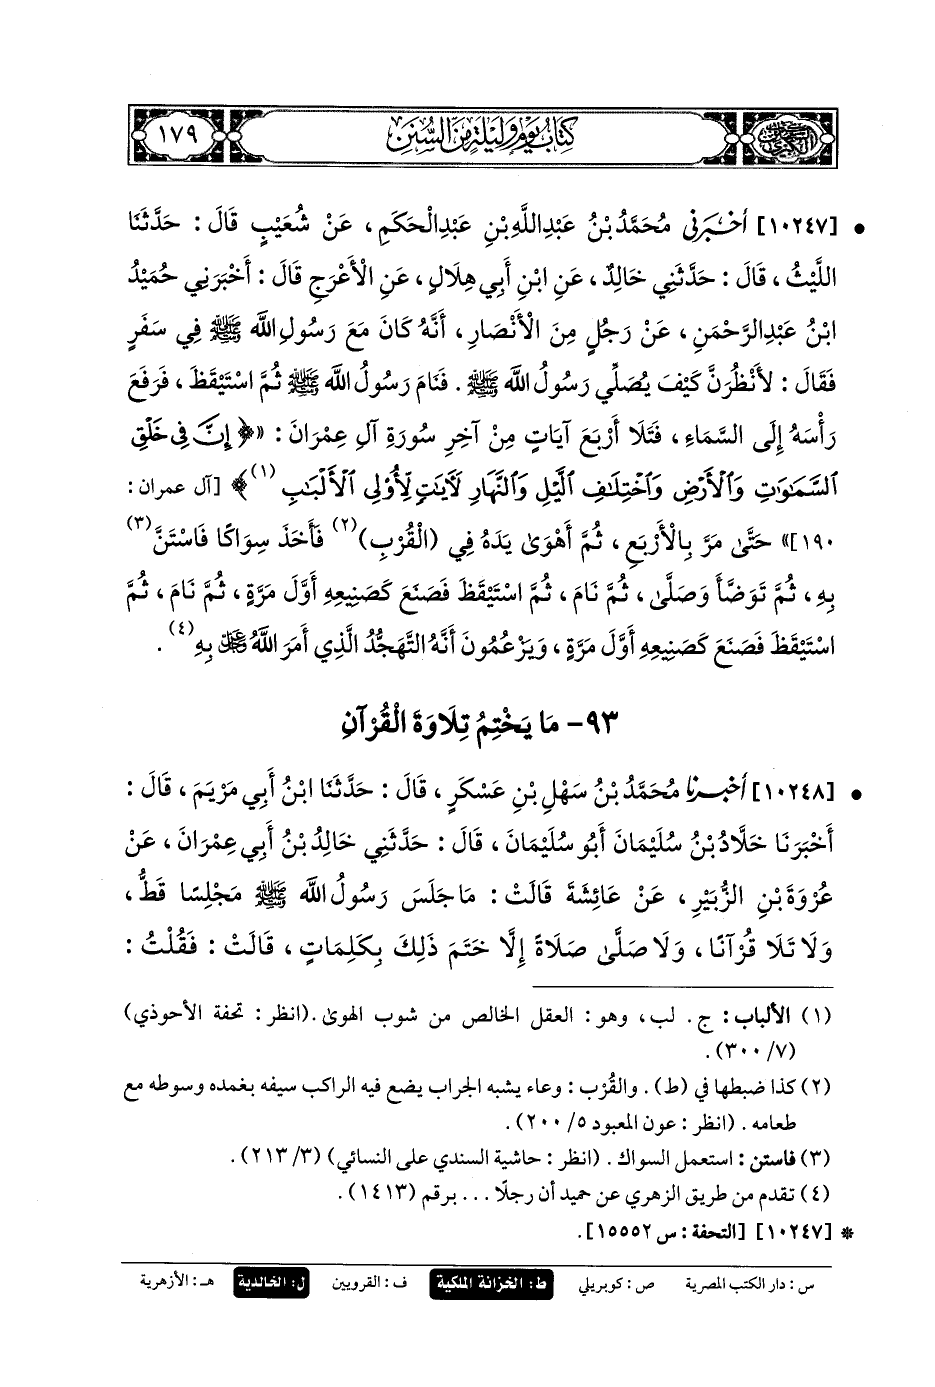 السنن الكبرى
كتاب يوم وليلة من السنن
١٧٩
• [١٠٢٤٧] أخبرني مُحَمَّدُ بْنُ عَبْدِاللَّهِ بْنِ عَبْدِالْحَكَمِ، عَنْ شُعَيْبٍ قَالَ: حَدَّثَنَا
اللَّيْثُ، قَالَ: حَدَّثَنِي خَالِدٌ، عَنِ ابْنِ أَبِي هِلَالٍ، عَنِ الْأَعْرَجِ قَالَ: أَخْبَرَنِي حُمَيْدُ
ابْنُ عَبْدِالرَّحْمَنِ، عَنْ رَجُلٍ مِنَ الْأَنْصَارِ، أَنَّهُ كَانَ مَعَ رَسُولِ اللَّه ﷺ فِي سَفَرٍ
فَقَالَ: لَأَنْظُرَنَّ كَيْفَ يُصَلِّي رَسُولُ اللَّه ﷺ. فَنَامَ رَسُولُ اللَّه ﷺ ثُمَّ اسْتَيْقَظَ، فَرَفَعَ
رَأْسَهُ إِلَى السَّمَاءِ، فَتَلَا أَرْبَعَ آيَاتٍ مِنْ آخِرِ سُورَةِ آلِ عِمْرَانَ: «﴿إِنَّ فِي خَلْقِ
ٱلسَّمَٰوَٰتِ وَٱلْأَرْضِ وَٱخْتِلَٰفِ ٱلَّيْلِ وَٱلنَّهَارِ لَآيَٰتٍ لِّأُو۟لِي ٱلْأَلْبَٰبِ (١)﴾ [آل عمران:
١٩٠]» حَتَّىٰ مَرَّ بِالْأَرْبَعِ، ثُمَّ أَهْوَىٰ يَدَهُ فِي (الْقُرْبِ)(٢) فَأَخَذَ سِوَاكًا فَاسْتَنَّ(٣)
بِهِ، ثُمَّ تَوَضَّأَ وَصَلَّىٰ، ثُمَّ نَامَ، ثُمَّ اسْتَيْقَظَ فَصَنَعَ كَصَنِيعِهِ أَوَّلَ مَرَّةٍ، ثُمَّ نَامَ، ثُمَّ
اسْتَيْقَظَ فَصَنَعَ كَصَنِيعِهِ أَوَّلَ مَرَّةٍ، وَيَزْعُمُونَ أَنَّهُ التَّهَجُّدُ الَّذِي أَمَرَ اللَّهُ ﷻ بِهِ(٤).
٩٣- مَا يَخْتِمُ تِلَاوَةَ الْقُرْآنِ
• [١٠٢٤٨] أخبرنا مُحَمَّدُ بْنُ سَهْلِ بْنِ عَسْكَرٍ، قَالَ: حَدَّثَنَا ابْنُ أَبِي مَرْيَمَ، قَالَ:
أَخْبَرَنَا خَلَّادُ بْنُ سُلَيْمَانَ أَبُو سُلَيْمَانَ، قَالَ: حَدَّثَنِي خَالِدُ بْنُ أَبِي عِمْرَانَ، عَنْ
عُرْوَةَ بْنِ الزُّبَيْرِ، عَنْ عَائِشَةَ قَالَتْ: مَا جَلَسَ رَسُولُ اللَّه ﷺ مَجْلِسًا قَطُّ،
وَلَا تَلَا قُرْآنًا، وَلَا صَلَّىٰ صَلَاةً إِلَّا خَتَمَ ذَلِكَ بِكَلِمَاتٍ، قَالَتْ: فَقُلْتُ:
(١) الألباب: ج. لب، وهو: العقل الخالص من شوب الهوىٰ. (انظر: تحفة الأحوذي)
(٧/ ٣٠٠).
(٢) كذا ضبطها في (ط). والقُرْب: وعاء يشبه الجراب يضع فيه الراكب سيفه بغمده وسوطه مع
طعامه. (انظر: عون المعبود ٥/ ٢٠٠).
(٣) فاستن: استعمل السواك. (انظر: حاشية السندي على النسائي) (٣/ ٢١٣).
(٤) تقدم من طريق الزهري عن حميد أن رجلًا ... برقم (١٤١٣).
* [١٠٢٤٧] [التحفة: س ١٥٥٥٢].
س: دار الكتب المصرية ص: كوبريلي ط: الخزانة الملكية ف: القرويين ل: الخالدية هـ: الأزهرية